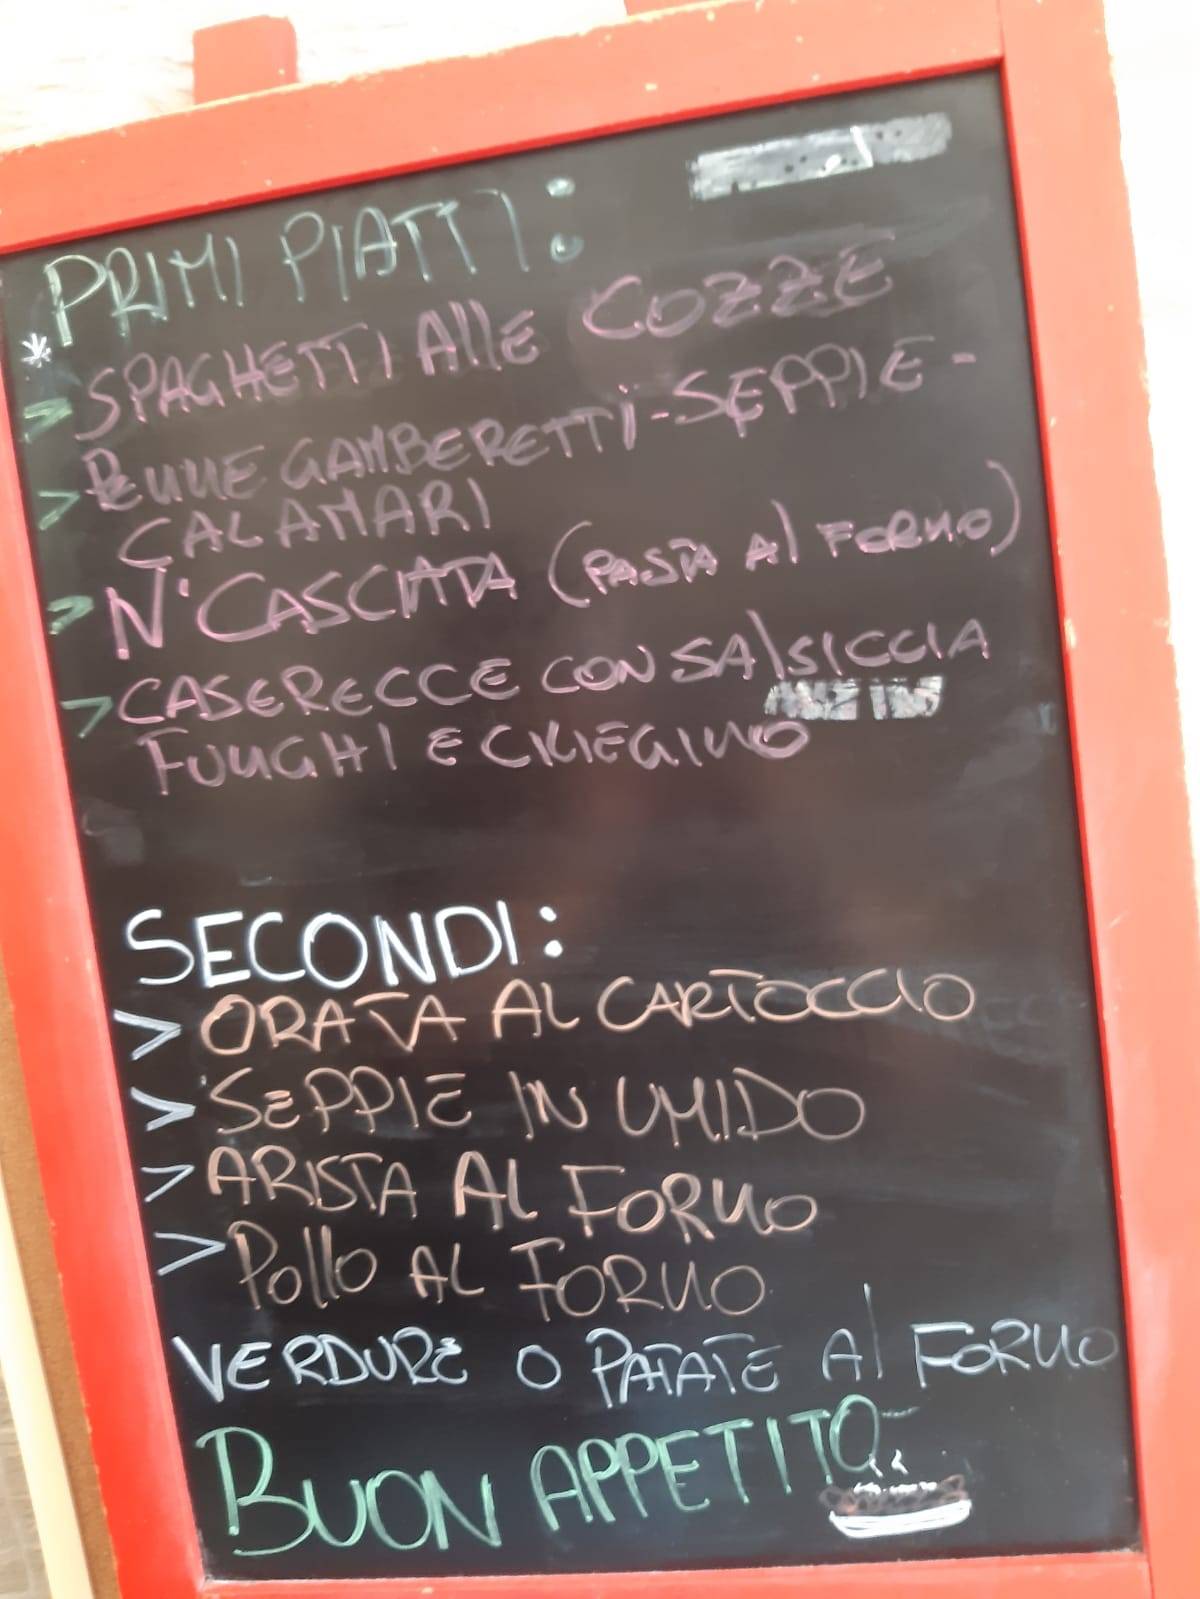 PRIMI PIATTI:
* SPAGHETTI AllE COZZE
> PENNE GAMBERETTI-SEPPIE-
CALAMARI
> N'CASCIATA (PASTA Al FORNO)
> CASERECCE CON SAlSICCIA
FUNGHI E CILIEGINO
SECONDI:
> ORATA AL CARTOCCIO
> SEPPIE IN UMIDO
> ARISTA AL FORNO
> POllO AL FORNO
VERDURE O PATATE Al FORNO
BUON APPETITO